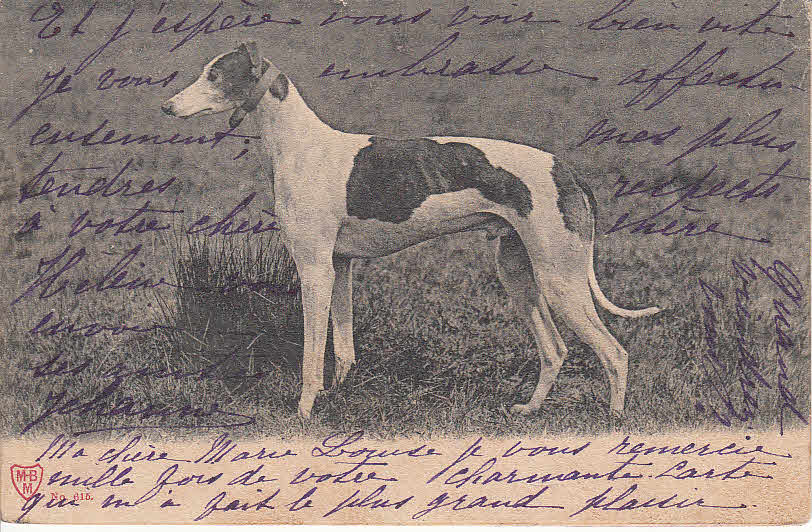 Et j'espère vous voir bien vite
Je vous embrasse affectu-
eusement; mes plus
tendres respects
à votre chère mère
Hélène
envoie
ses
Jehanne
Quand
viendrez
vous?
Ma chère Marie Louise je vous remercie
mille fois de votre charmante carte
qui m'a fait le plus grand plaisir.
M.B
M
No. 615.